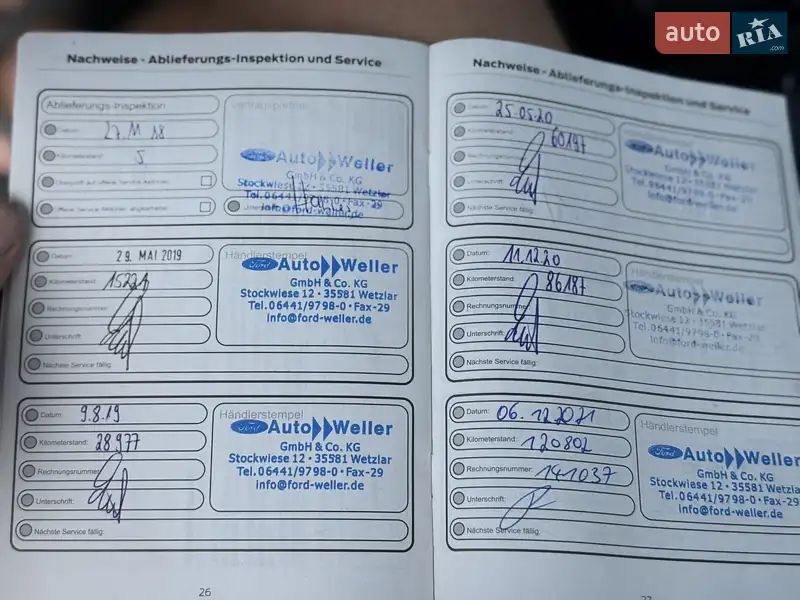 auto RIA .com
Nachweise - Ablieferungs-Inspektion und Service
Ablieferungs-Inspektion
Datum:
Kilometerstand: 5
Auto Weller
GmbH & Co. KG
Stockwiese 12 • 35581 Wetzlar
Fax-29
info@ford-weller.de
Datum: 29. MAI 2019
Kilometerstand:
Rechnungsnummer:
Unterschrift:
Nächste Service fällig:
Händlerstempel
Ford Auto Weller
GmbH & Co. KG
Stockwiese 12 • 35581 Wetzlar
Tel. 06441/9798-0 • Fax-29
info@ford-weller.de
Datum: 9.8.19
Kilometerstand: 28.977
Rechnungsnummer:
Unterschrift:
Nächste Service fällig:
Händlerstempel
Ford Auto Weller
GmbH & Co. KG
Stockwiese 12 • 35581 Wetzlar
Tel. 06441/9798-0 • Fax-29
info@ford-weller.de
26
Nachweise - Ablieferungs-Inspektion und Service
Datum: 25.05.20
Kilometerstand: 60197
Unterschrift:
Nächste Service fällig:
Auto Weller
GmbH & Co. KG
Stockwiese 12 • 35581 Wetzlar
Tel. 06441/9798-0 • Fax-29
info@ford-weller.de
Datum: 11.12.20
Kilometerstand: 86187
Rechnungsnummer:
Unterschrift:
Nächste Service fällig:
Händlerstempel
Auto Weller
GmbH & Co. KG
Stockwiese 12 • 35581 Wetzlar
Tel. 06441/9798-0 • Fax-29
info@ford-weller.de
Datum: 06.12.2021
Kilometerstand: 120802
Rechnungsnummer: 141037
Unterschrift:
Nächste Service fällig:
Händlerstempel
Ford Auto Weller
GmbH & Co. KG
Stockwiese 12 • 35581 Wetzlar
Tel. 06441/9798-0 • Fax-29
info@ford-weller.de
27